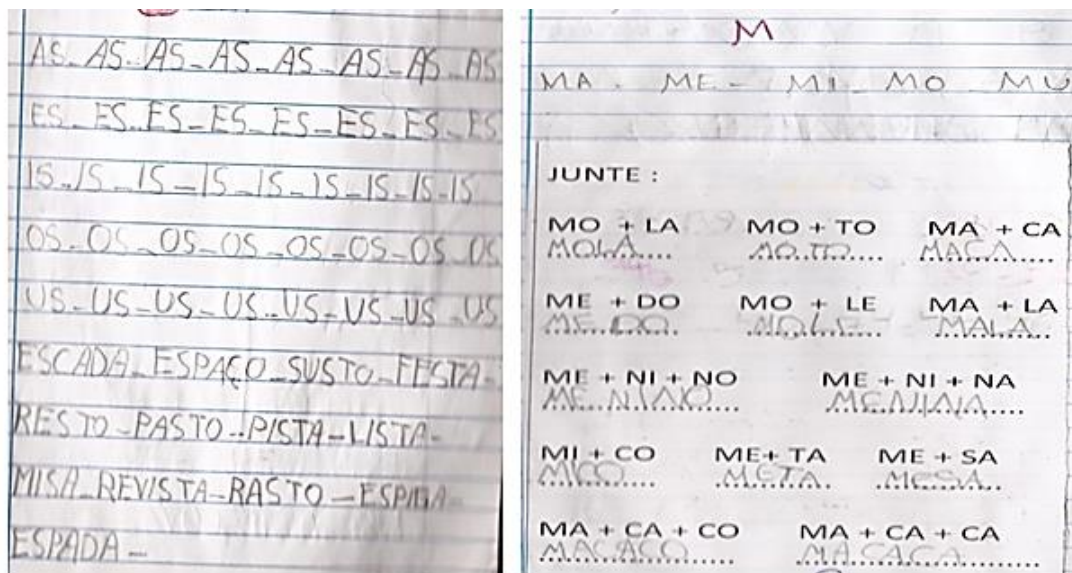 AS_AS_AS_AS_AS_AS_AS_AS
ES_ES_ES_ES_ES_ES_ES_ES
IS_IS_IS_IS_IS_IS_IS_IS_IS
OS_OS_OS_OS_OS_OS_OS_OS
US_US_US_US_US_US_US_US
ESCADA_ESPAÇO_SUSTO_FESTA-
RESTO-PASTO-PISTA-LISTA-
MISA_REVISTA-RASTO-
ESPADA-
M
MA. ME- MI_ MO MU
JUNTE :
MO + LA MO + TO MA + CA
MOLA MOTO MACA
ME + DO MO + LE MA + LA
MEDO MOLE MALA
ME + NI + NO ME + NI + NA
MENINO MENINA
MI + CO ME+ TA ME + SA
MICO META MESA
MA + CA + CO MA + CA + CA
MACACO MACACA